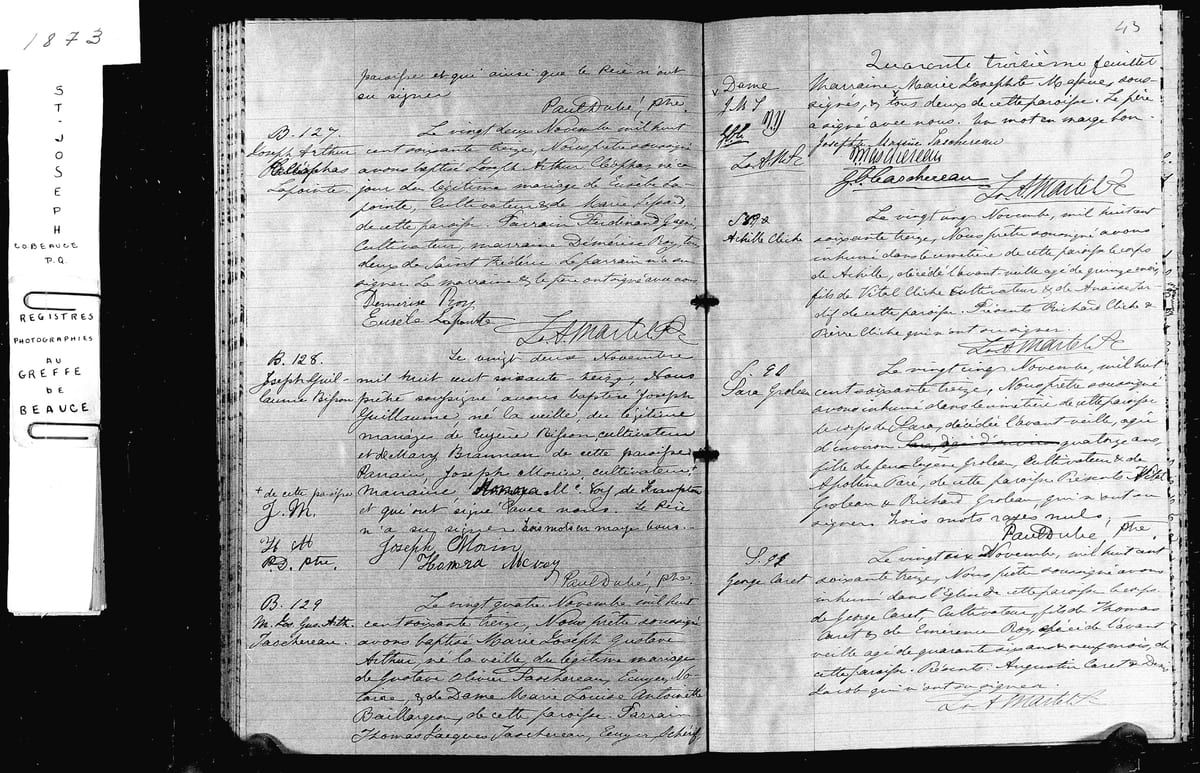 1873
ST-JOSEPH
CO. BEAUCE
P.Q.
REGISTRES
PHOTOGRAPHIES
AU
GREFFE
de
BEAUCE
paroisse et qui ainsi que le Père n'ont
su signer
Paul Dubé, ptre.
B. 127
Joseph Arthur
Cléophas
Lapointe
Le vingt deux Novembre mil huit
cent soixante treize, Nous prêtre soussigné
avons baptisé Joseph Arthur Cléophas né ce
jour du légitime mariage de Eusèbe La-
pointe, Cultivateur & de Marie
de cette paroisse. Parrain Ferdinand
Cultivateur, marraine Démérise Roy, tous
deux de Saint Frédéric. Le parrain n'a su
signer. La marraine & le père ont signé avec nous
Demerise Roy
Eusèbe Lapointe
Ls A Martel Ptr
B. 128.
Joseph Guil-
laume Bisson
Le vingt deux Novembre
mil huit cent soixante-treize, Nous
prêtre soussigné avons baptisé Joseph
Guillaume, né la veille, du légitime
mariage de Eugène Bisson cultivateur
et de Mary Brannan de cette paroisse
Parrain Joseph Morin cultivateur +
marraine de Frampton
et qui ont signé avec nous. Le Père
n'a su signer trois mots en marge bons.
+ de cette paroisse
J. M.
H M
P.D. ptre.
Joseph Morin
Honora Mcvoy
Paul Dubé, ptre.
B. 129
M. Jos. Gus. Arth.
Taschereau
Le vingt quatre Novembre mil huit
cent soixante treize, Nous prêtre soussigné
avons baptisé Marie Joseph Gustave
Arthur né la veille du légitime mariage
de Gustave Olivier Taschereau, Ecuyer, No-
taire, & de Dame Marie Louise Antoinette
Baillargeon, de cette paroisse. Parrain
Thomas Jacques Taschereau, Ecuyer, Shérif
43
Quarante troisième feuillet
v Dame
Ls A M Ptr
Marraine Marie Josephte Massue, sous-
signés, & tous deux de cette paroisse. Le père
a signé avec nous. Un mot en marge bon.
Josephte Massue Taschereau
Taschereau
Taschereau
Ls A Martel Ptr
Achille Cliche
Le vingt cinq Novembre, mil huit cent
soixante treize, Nous prêtre soussigné avons
inhumé dans le cimetière de cette paroisse le corps
de Achille, décédé l'avant veille agé de quinze mois,
fils de Vital Cliche Cultivateur & de Anaïse Tar-
dif de cette paroisse. Présents Richard Cliche &
Pierre Cliche qui n'ont su signer.
Ls A Martel Ptr
S. 90
Sara Groleau
Le vingt cinq Novembre, mil huit
cent soixante treize, Nous prêtre soussigné
avons inhumé dans le cimetière de cette paroisse
le corps de Sara, décédée l'avant veille, agée
d'environ quatorze ans,
fille de feu Eugene Groleau, Cultivateur & de
Apolline Paré, de cette paroisse. Présents Vital
Groleau & Richard Groleau, qui n'ont su
signer. Trois mots rayés nuls.
Paul Dubé, ptre.
S. 91
George Caret
Le vingt six Novembre, mil huit cent
soixante treize, Nous prêtre soussigné avons
inhumé dans l'Eglise de cette paroisse le corps
de George Caret, Cultivateur, fils de Thomas
Caret & de Emérence Roy, décédé l'avant
veille agé de quarante six ans & neuf mois, de
cette paroisse. Présents Augustin Caret &
Jacob qui n'ont su signer.
Ls A Martel Ptr